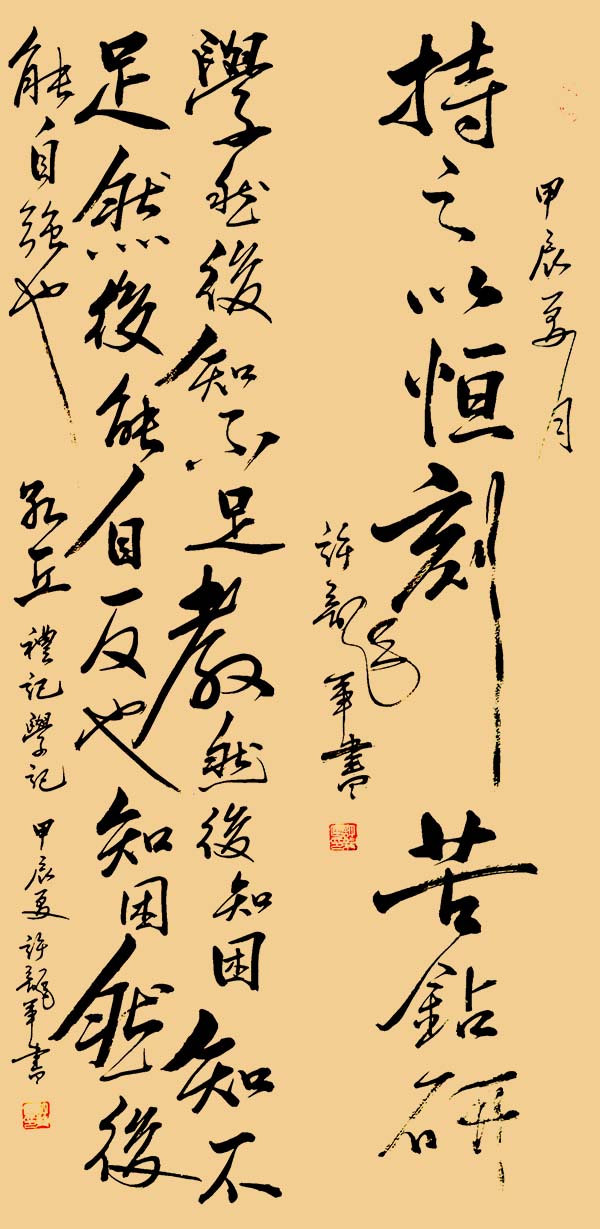 甲辰夏月
持之以恒刻苦鉆研
許龍軍書
學然後知不足教然後知困知不
足然後能自反也知困然後
能自強也
孔丘禮記學記甲辰夏許龍軍書